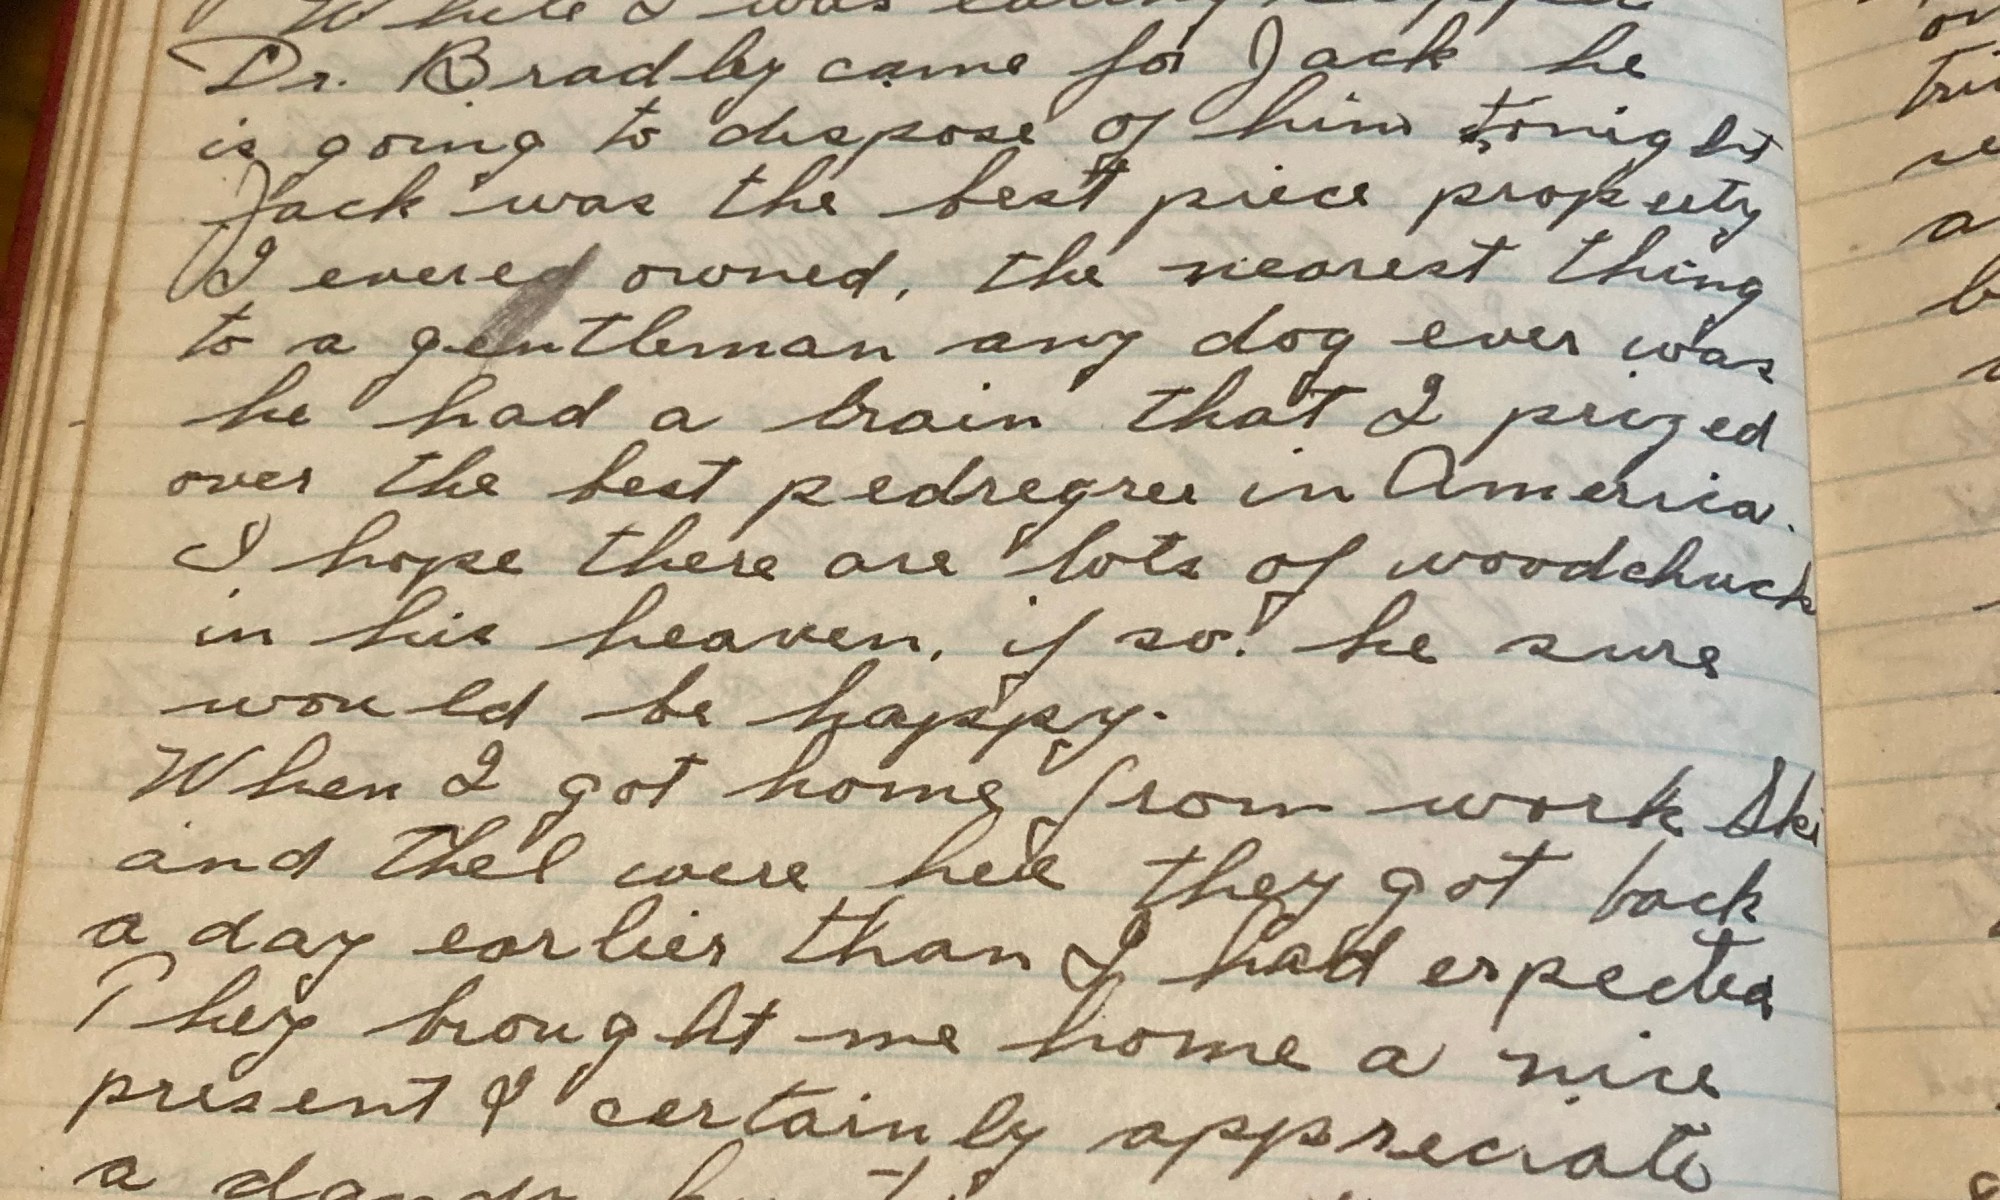 While I was eating supper
Dr. Bradley came for Jack he
is going to dispose of him tonight
Jack was the best piece property
I evered owned, the nearest thing
to a gentleman any dog ever was
he had a brain that I prized
over the best pedregree in America.
I hope there are lots of woodchuck
in his heaven, if so! he sure
would be happy.
When I got home from work Ski
and Thel were here they got back
a day earlier than I had expected
They brought me home a nice
present I certainly appreciate
a